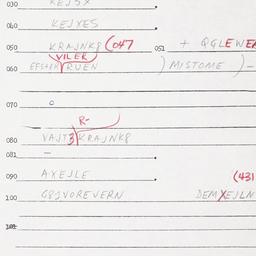 030 KEJSX
040 KEJXES
050 KRAJNK8 (047 051 + QGLEWER
VILER
060 EFSTER RUEN ) MISTOME )-
070 o
R-
080 VAJT3 KRAJNK8
081 —
090 AXEJLE (431
100 G8JVOREVERN DEMXEJLN